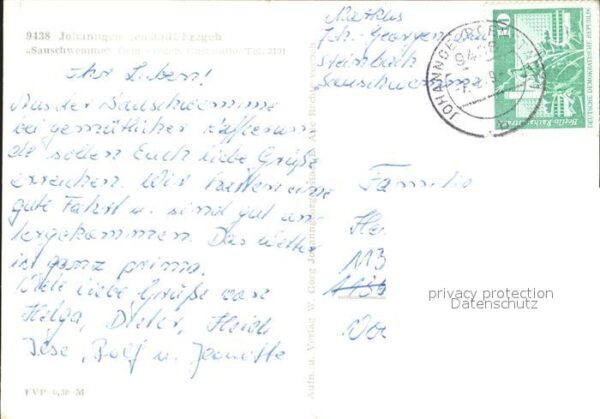 9438 Johanngeorgenstadt/Erzgeb.
„Sauschwemme"
Ihr Lieben!
Aus der Sauschwemme
bei gemütlicher Kaffeerun
de sollen Euch liebe Grüße
erreichen. Wir hatten eine
gute Fahrt u. sind gut an
gekommen. Das Wetter
ist ganz prima.
Viele liebe Grüße von
Helga, Dieter, Heidi
Ilse, Rolf u. Jeanette
EVP 0,30 M
Aufn. u. Verlag W. Georg Johanngeorgenstadt
Joh.-Georgen
Steinbach
Sauschwemme
JOHANNGEORGENSTADT
9438
10
DEUTSCHE DEMOKRATISCHE REPUBLIK
Berlin Rathausstraße
Familie
113
privacy protection
Datenschutz